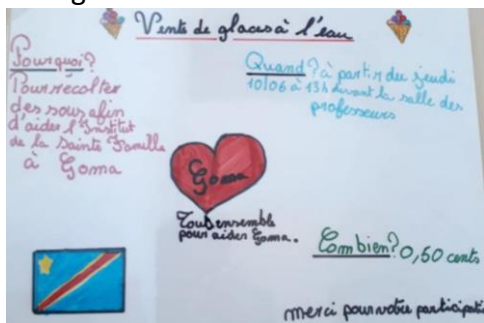 Vente de glaces à l'eau
Pourquoi?
Pour récolter
des sous afin
d'aider l'Institut
de la Sainte Famille
à Goma
Quand? à partir du jeudi
10/06 à 13h devant la salle des
professeurs
Goma
Tous ensemble
pour aider Goma.
Combien? 0,50 cents
merci pour votre